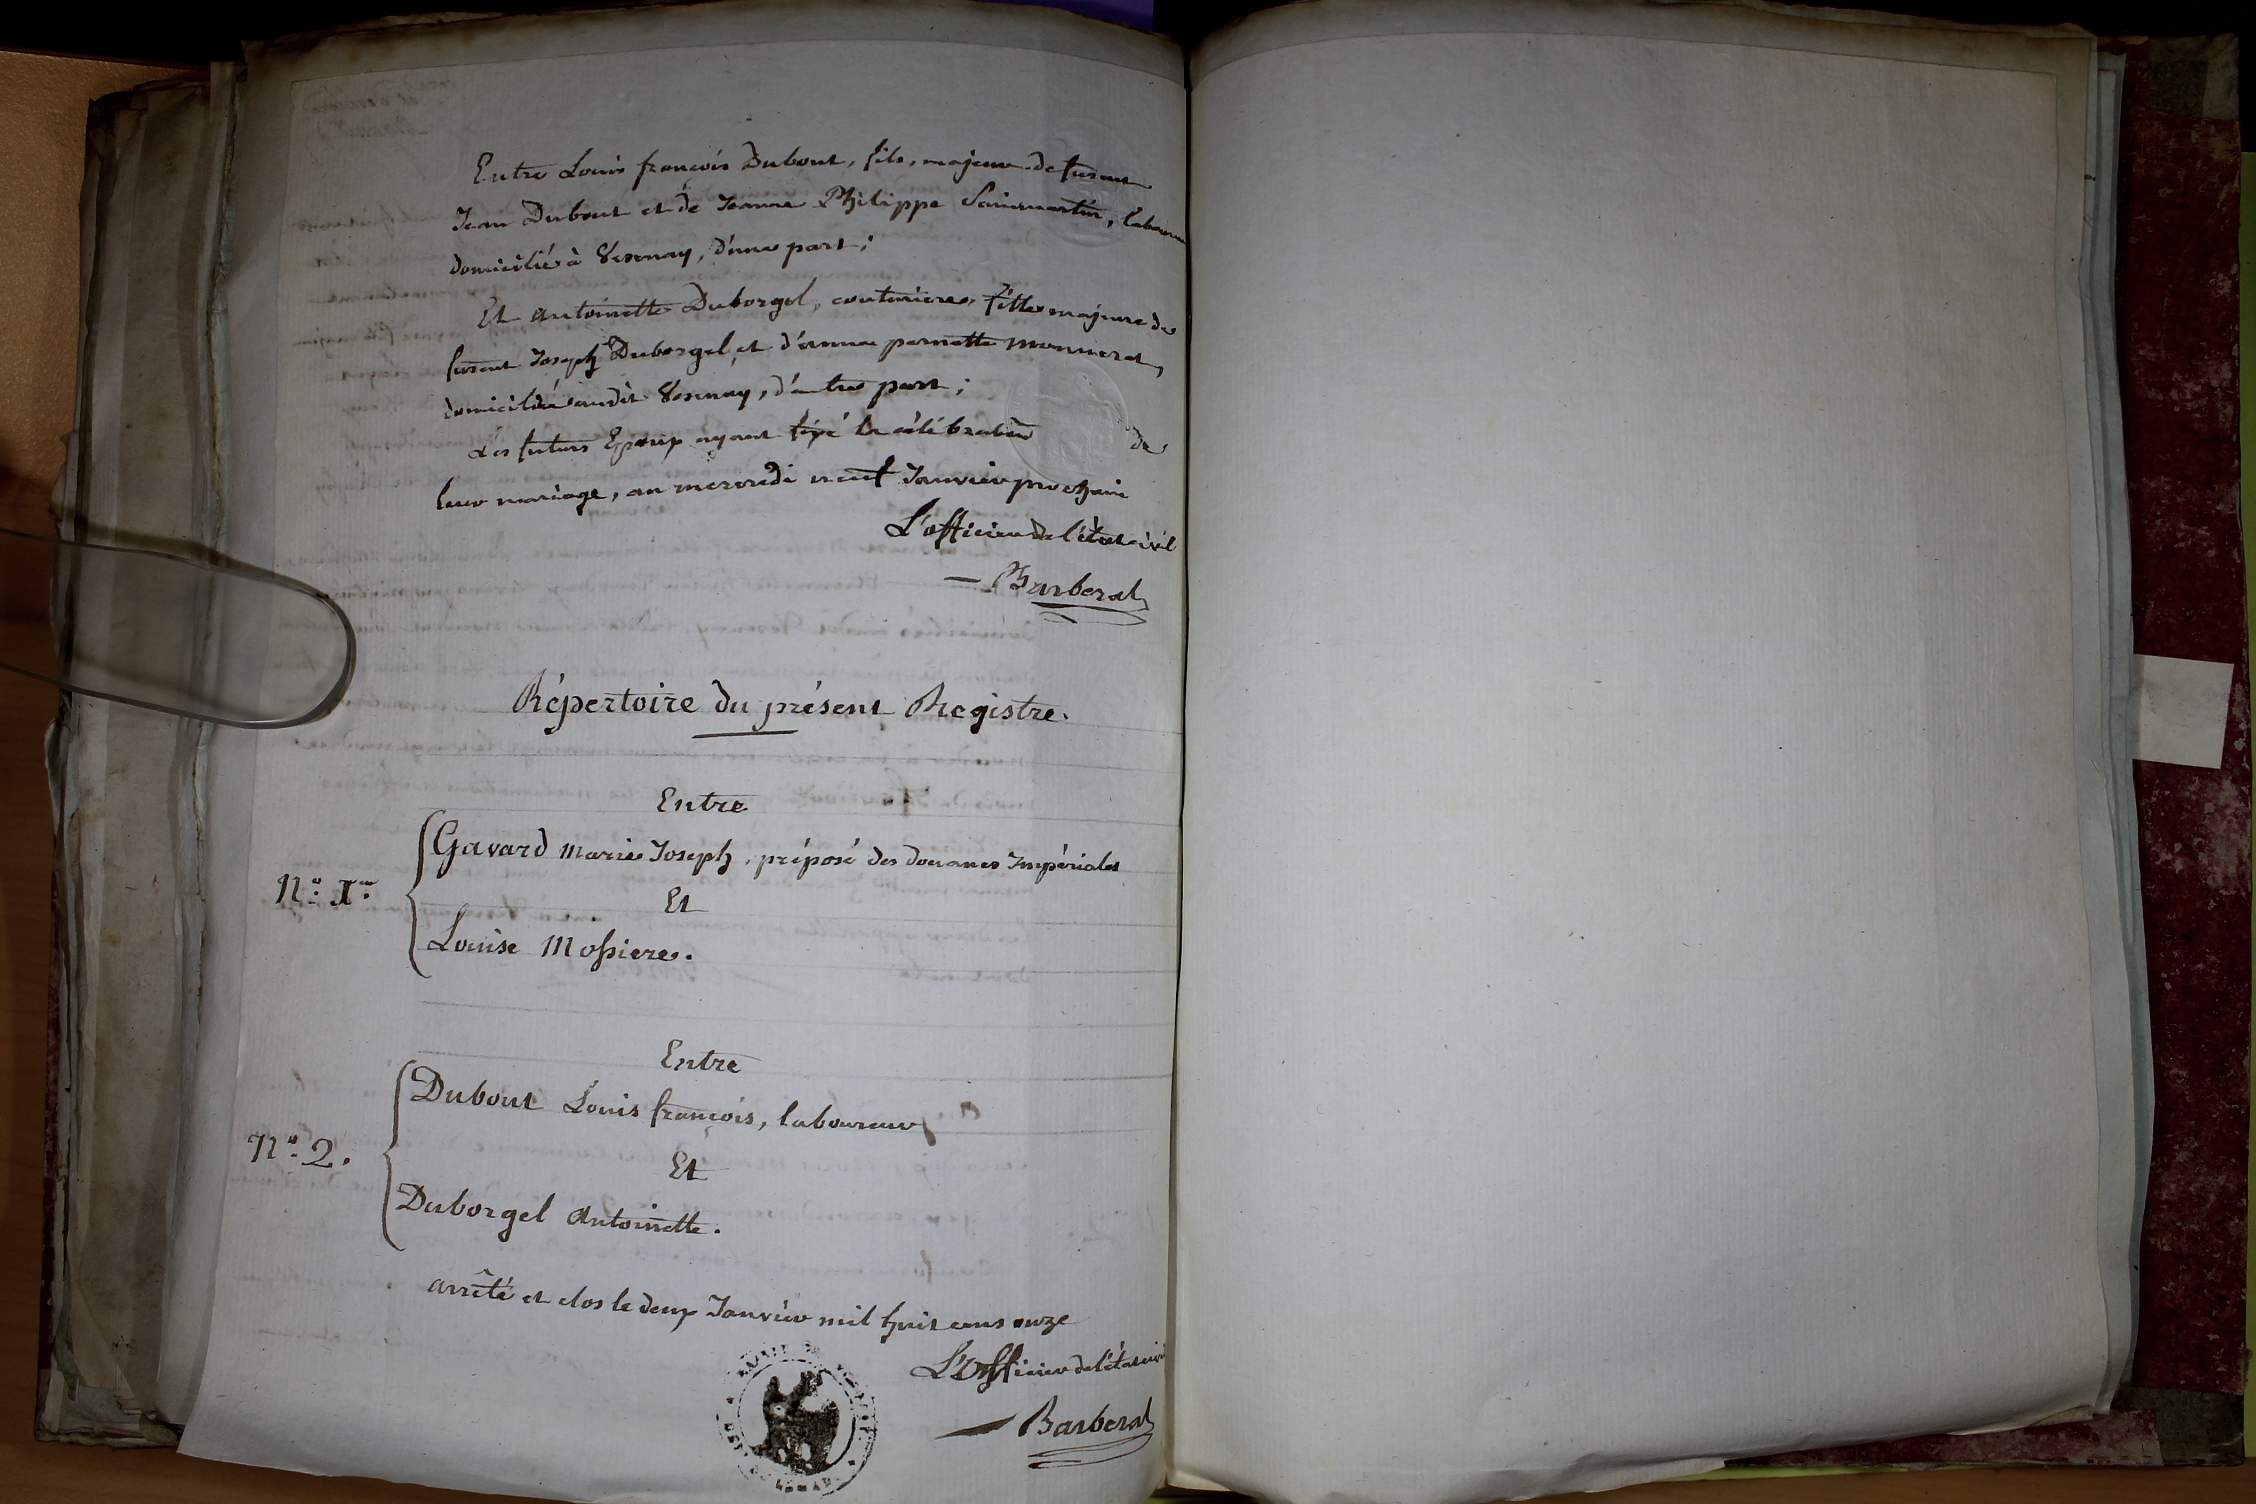 Entre Louis françois Dubout, fils, majeur de fuseut
Jean Dubout et de Jeanne Philippe Sainmartin, laboureur
domicilié à Vesenay, d'une part;
Et antoinette Duborgel, couturiere, fille majeure de
fuseut Joseph Duborgel, et d'anne pernette monnerat,
domiciliée audit Vesenay, d'autre part;
Les futurs Epoux ayant fixé la célébration de
leur mariage, au mercredi neuf Janvier prochain
L'officier de l'état civil
Barberat
Répertoire du présent Registre.
Entre
Gavard marie Joseph, préposé des douanes Impériales
N.º I.er Et
Louise Mossiere.
Entre
Dubout Louis françois, laboureur
N.º 2. Et
Duborgel antoinette.
arrêté et clos le deux Janvier mil huit cens onze
L'Officier de l'état civil
Barberat